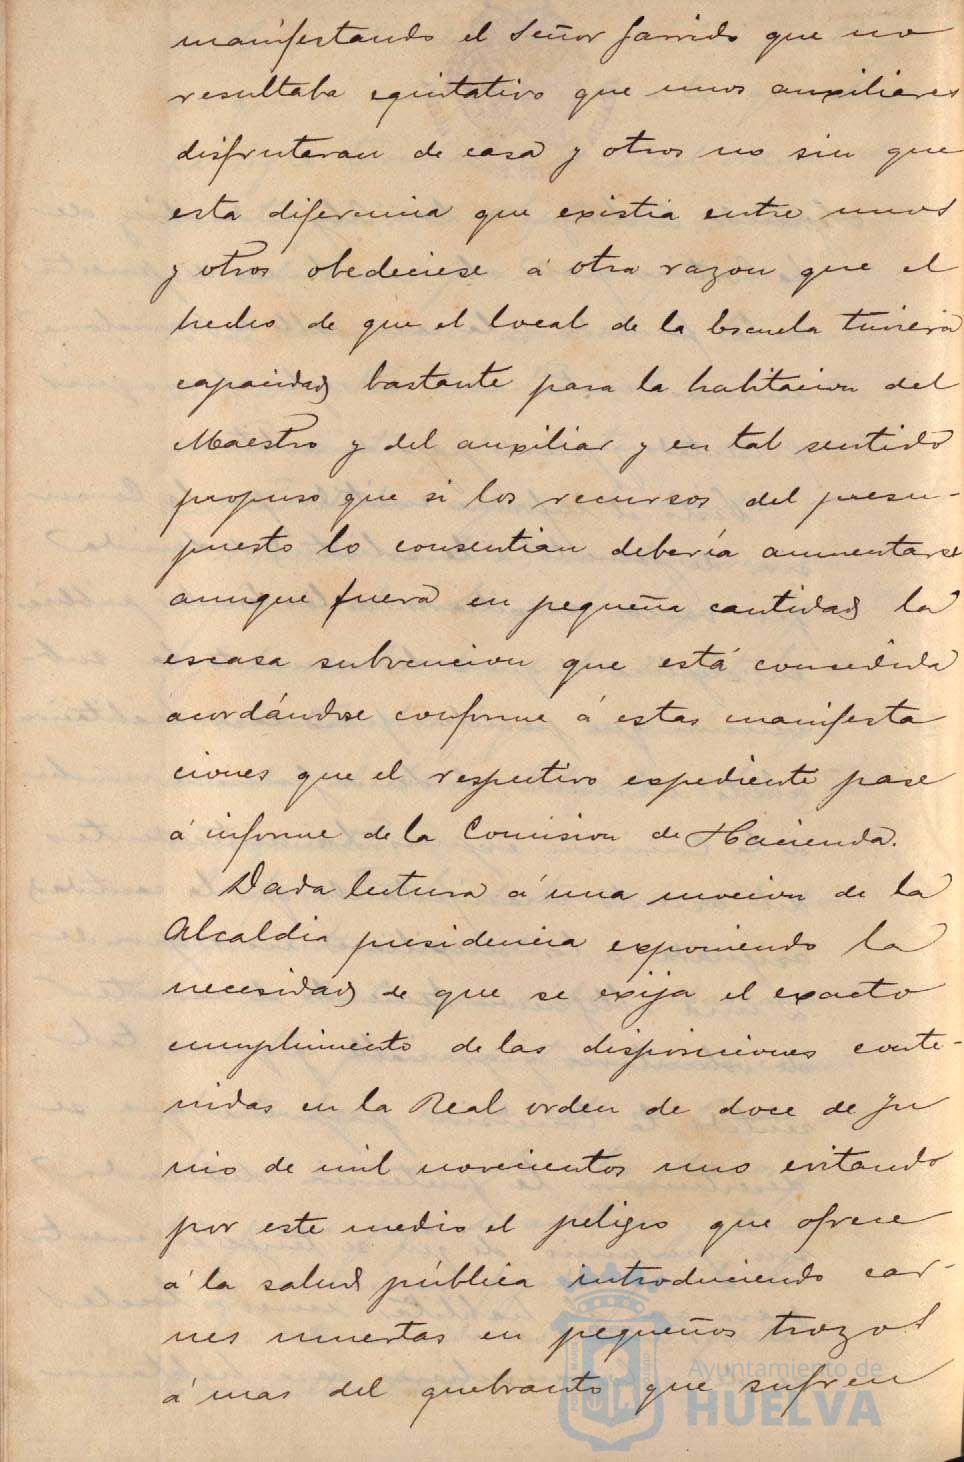 manifestando el Señor Garrido que no
resultaba equitativo que unos auxiliares
disfrutaran de casa y otros no sin que
esta diferencia que existia entre unos
y otros obedeciese á otra razon que el
hecho de que el local de la Escuela tuviera
capacidad bastante para la habitacion del
Maestro y del auxiliar y en tal sentido
propuso que si los recursos del presu-
puesto lo consentian debería aumentarse
aunque fuera en pequeña cantidad la
escasa subvencion que está concedida
acordándose conforme á estas manifesta
ciones que el respectivo expediente pase
á informe de la Comision de Hacienda.
Dada lectura á una mocion de la
Alcaldia presidencia exponiendo la
necesidad de que se exija el exacto
cumplimiento de las disposiciones conte-
nidas en la Real orden de doce de Ju
nio de mil novecientos uno evitando
por este medio el peligro que ofrece
á la salud pública introduciendo car-
nes muertas en pequeños trozos
á mas del quebranto que sufren
Ayuntamiento de
HUELVA